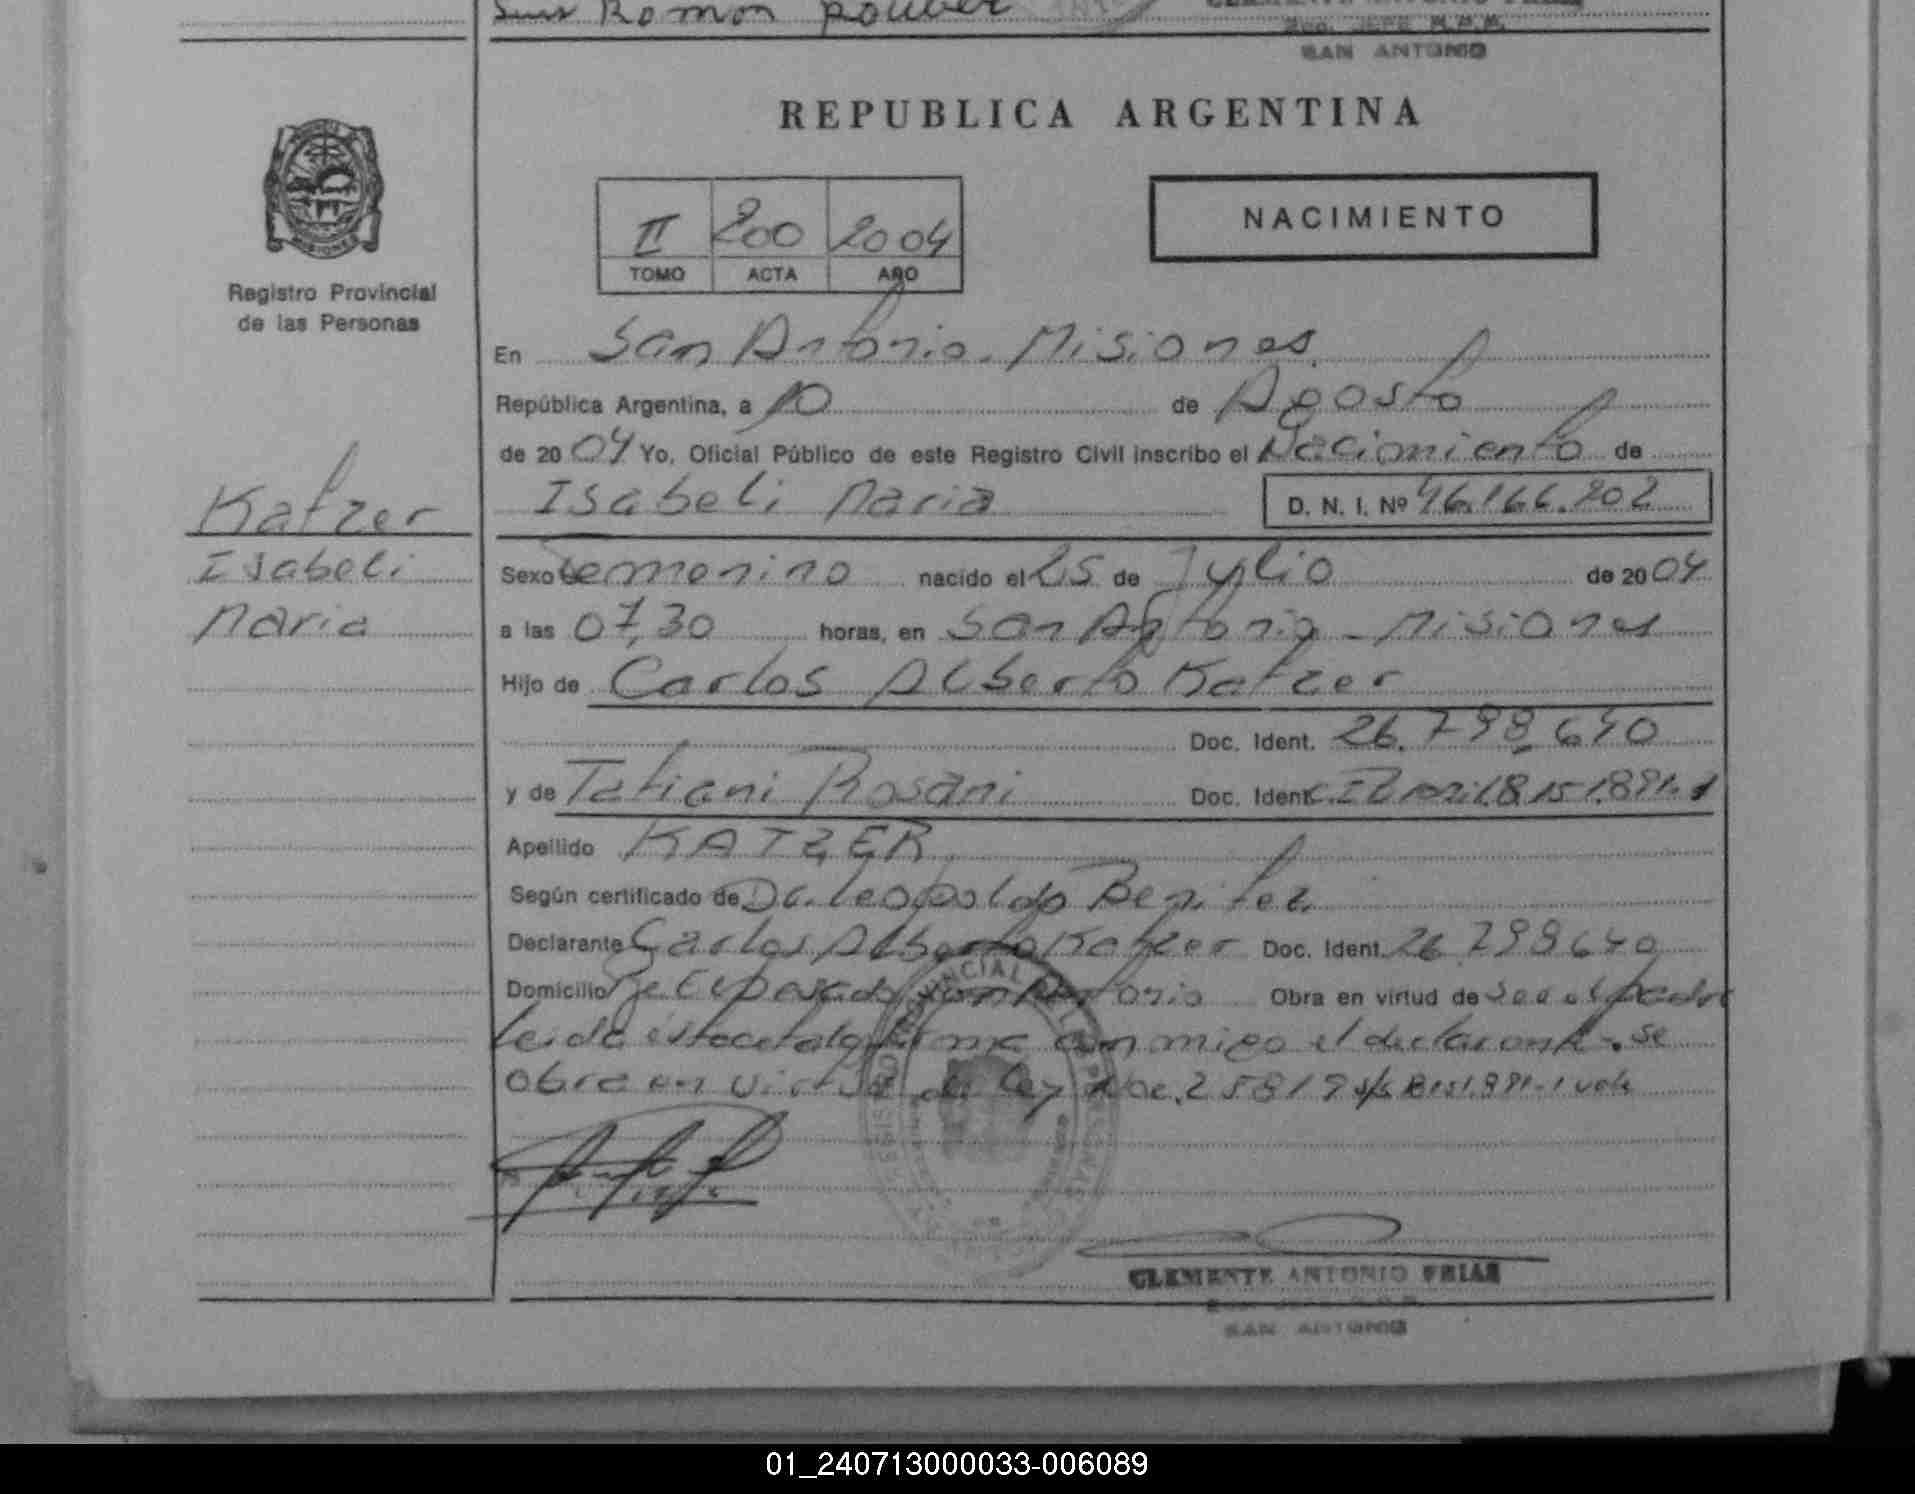 Luis Ramon
SAN ANTONIO
REPUBLICA ARGENTINA
NACIMIENTO
II 200 2004
TOMO ACTA AÑO
Registro Provincial
de las Personas
En San Antonio - Misiones
República Argentina, a 10 de Agosto
de 2004 Yo, Oficial Público de este Registro Civil inscribo el Nacimiento de
Isabeli Maria D. N. I. Nº 46.166.202
Katzer
Isabeli
Maria
Sexo Femenino nacido el 25 de Julio de 2004
a las 07,30 horas, en San Antonio - Misiones
Hijo de Carlos Alberto Katzer
Doc. Ident. 26.798.640
y de Tatiani Rosani Doc. Ident. C.I Brazil 8.151.891-1
Apellido KATZER
Según certificado de Dr. Leopoldo Benitez
Declarante Carlos Alberto Katzer Doc. Ident. 26.798640
Domicilio San Antonio Obra en virtud de ser el padre
Leida esta acta la firma conmigo el declarante - se
obra en virtud de Ley Nac. 25819 s/r 8.151.891-1 vale
CLEMENTE ANTONIO FRIAS
SAN ANTONIO
01_240713000033-006089